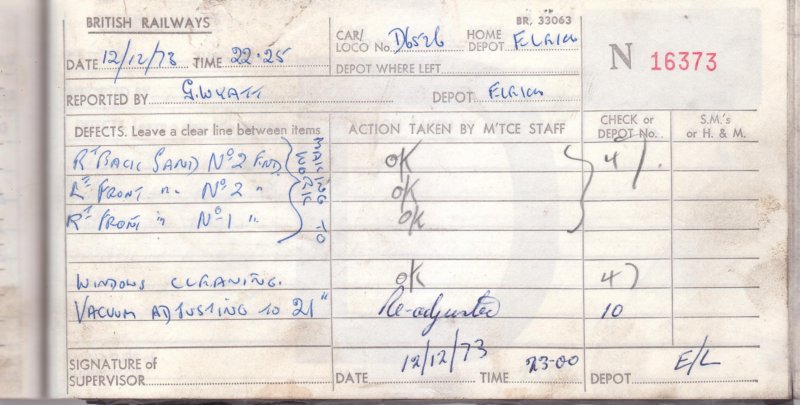 BRITISH RAILWAYS
BR. 33063
CAR/ LOCO No. D6526 HOME DEPOT
DATE 12/12/73 TIME 22.25
DEPOT WHERE LEFT
N 16373
REPORTED BY G. WYATT DEPOT
DEFECTS. Leave a clear line between items
ACTION TAKEN BY M'TCE STAFF
CHECK or DEPOT No.
S.M.'s or H. & M.
RT BACK SAND No 2 END OK 47
LT FRONT " No 2 " OK
RT FRONT " No 1 " OK
TO
WINDOWS CLEANING. OK 47
VACUUM ADJUSTING TO 21" Re-adjusted 10
SIGNATURE of SUPERVISOR
DATE 12/12/73 TIME 23-00 DEPOT E/L